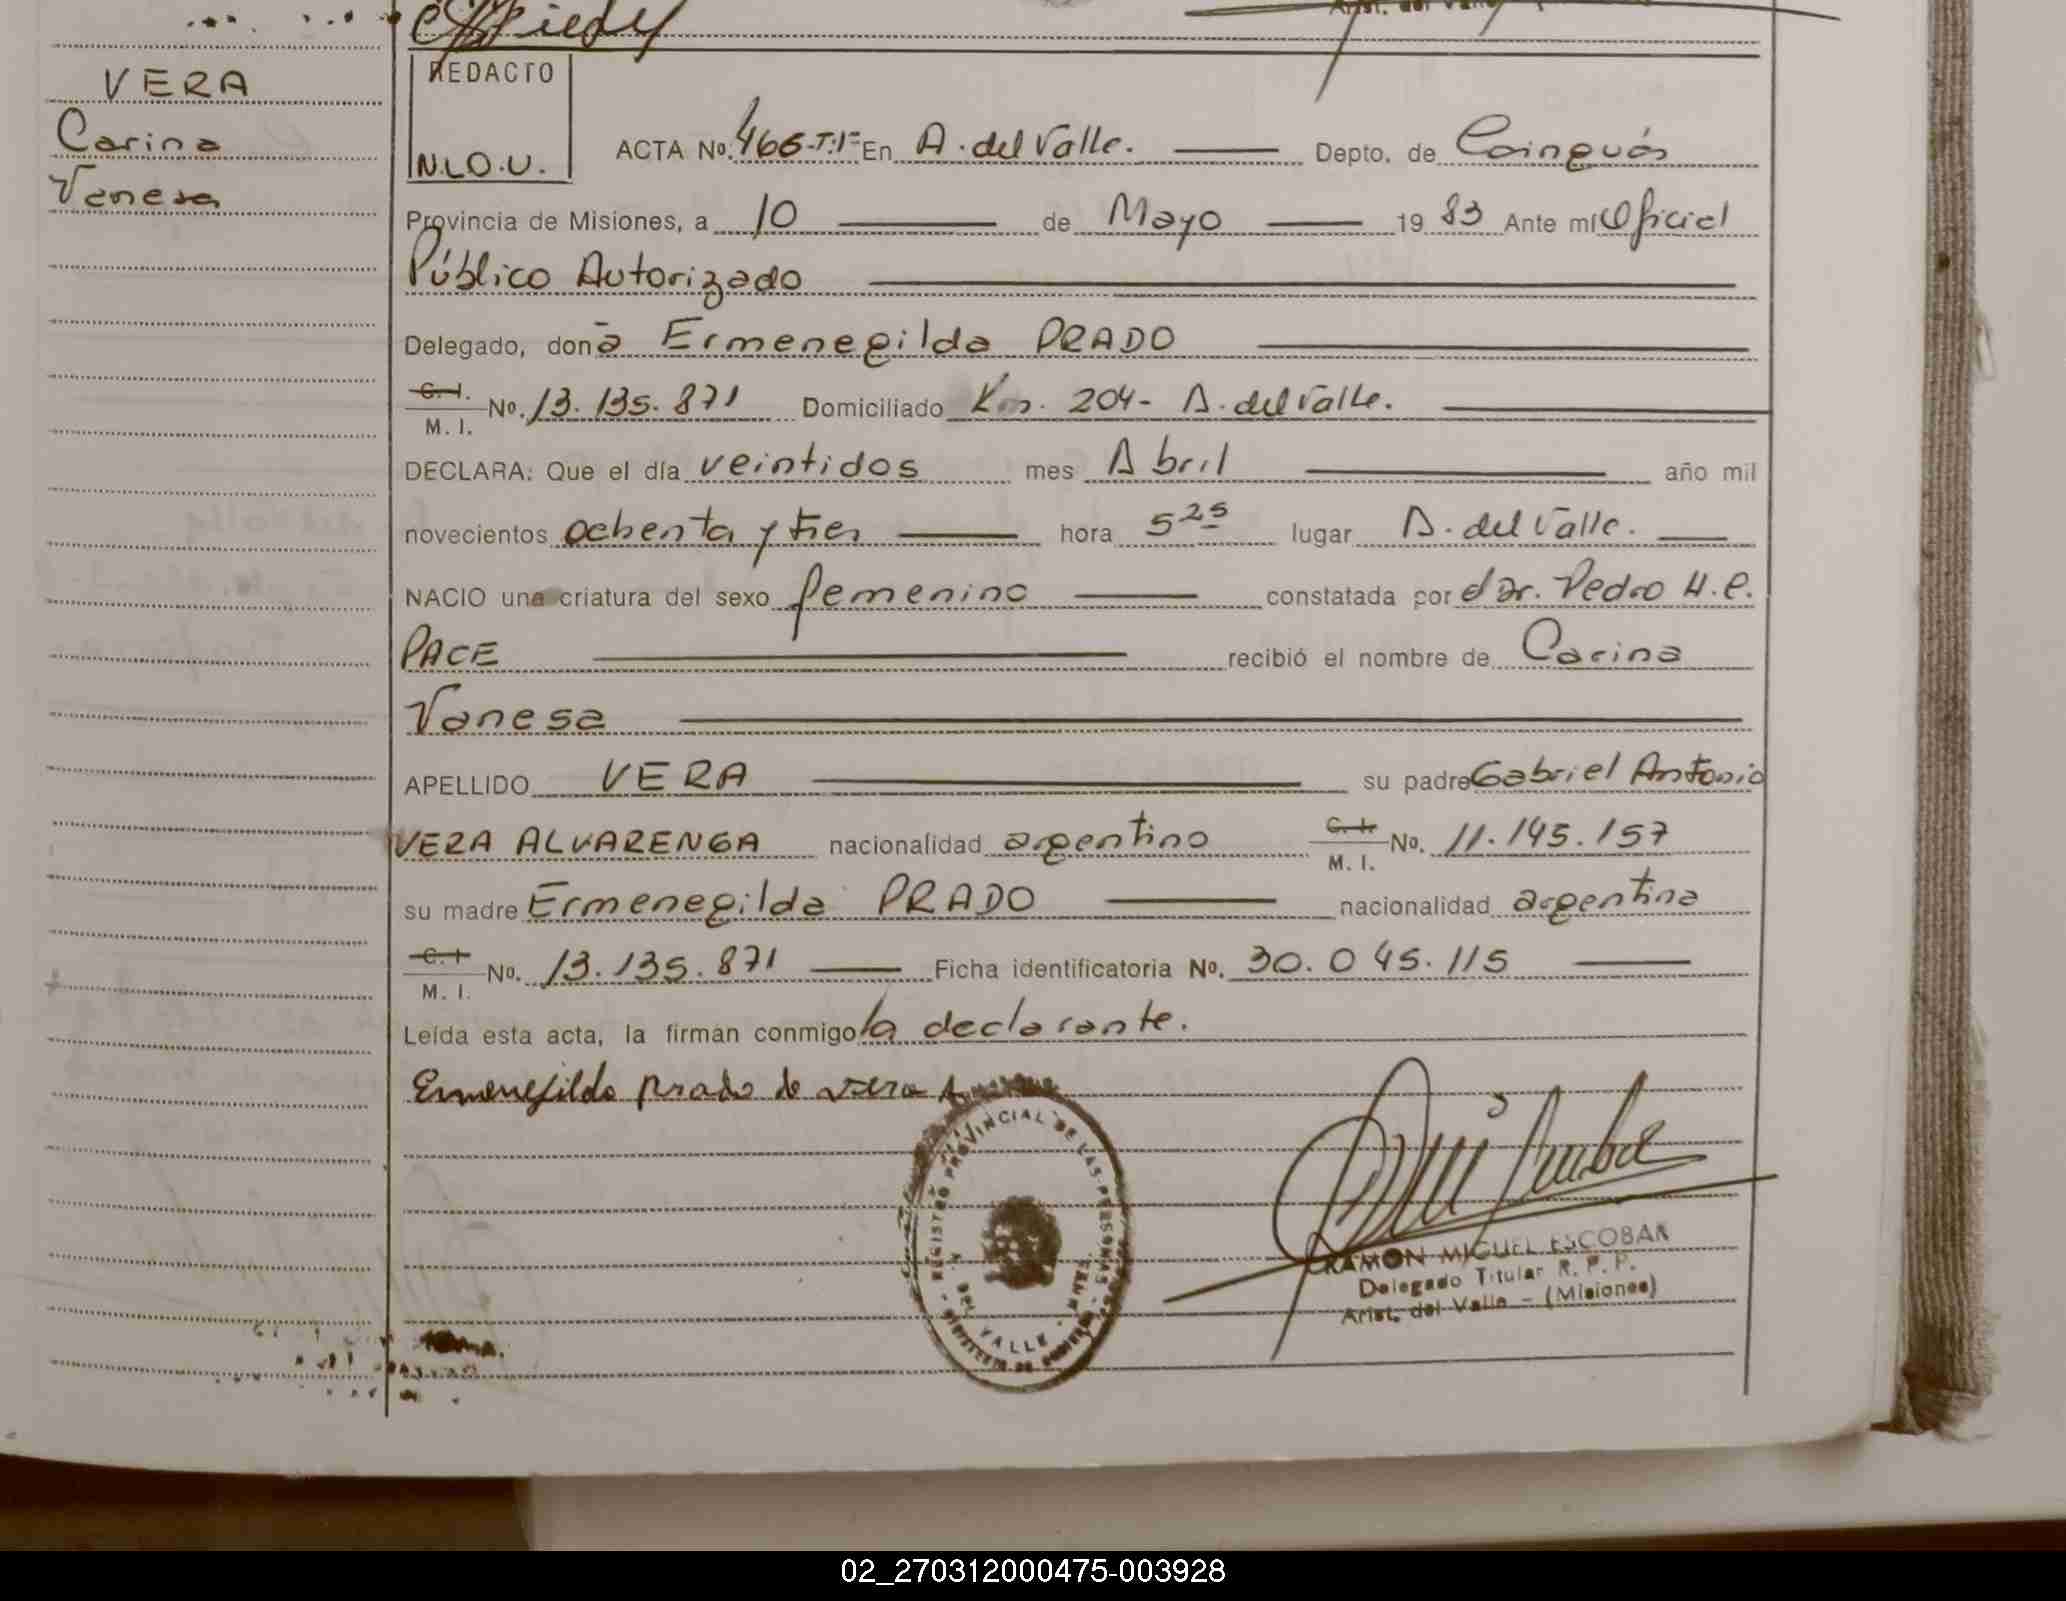 VERA
Carina
Vanesa
REDACTO
N.L.O.U.
ACTA No. 466-T:1º- En A. del Valle. Depto. de Cainguás
Provincia de Misiones, a 10 de Mayo 1983 Ante mí Oficial
Público Autorizado
Delegado, doña Ermenegilda PRADO
C. I. M. I. No. 13.135.871 Domiciliado Km. 204- A. del Valle.
DECLARA: Que el día veintidos mes Abril año mil
novecientos ochenta y tres hora 5 25 lugar A. del Valle.
NACIO una criatura del sexo femenino constatada por dar. Pedro H.C.
PACE recibió el nombre de Carina
Vanesa
APELLIDO VERA su padre Gabriel Antonio
VERA ALVARENGA nacionalidad argentino C. I. M. I. No. 11.145.157
su madre Ermenegilda PRADO nacionalidad argentina
C. I. M. I. No. 13.135.871 Ficha identificatoria No. 30.045.115
Leída esta acta, la firman conmigo la declarante.
Ermenegilda Prado de Vera A
REGISTRO PROVINCIAL DE LAS PERSONAS
DEL VALLE
RAMON MIGUEL ESCOBAR
Delegado Titular R. P. P.
Arist. del Valle - (Misiones)
02_270312000475-003928